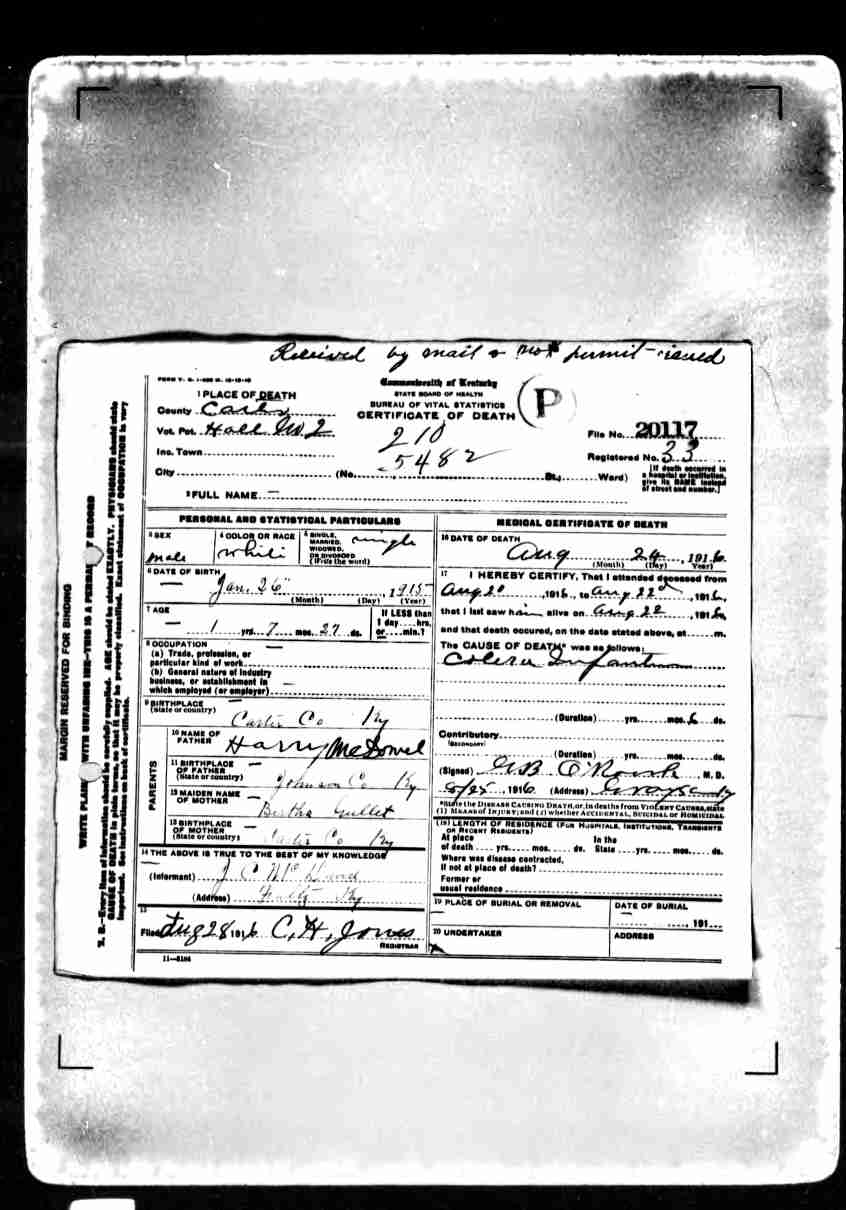 Received by mail & not permit issued
Commonwealth of Kentucky
STATE BOARD OF HEALTH
BUREAU OF VITAL STATISTICS
CERTIFICATE OF DEATH
P
1 PLACE OF DEATH
County Carter
Vot. Pct. Hall No 2
Inc. Town
City (No. St.; Ward)
210
5482
File No. 20117
Registered No. 33
[If death occurred in a hospital or institution, give its NAME instead of street and number.]
2 FULL NAME —
PERSONAL AND STATISTICAL PARTICULARS
3 SEX
male
4 COLOR OR RACE
white
5 SINGLE, MARRIED, WIDOWED, OR DIVORCED (Write the word)
single
6 DATE OF BIRTH
Jan. 26, 1915
(Month) (Day) (Year)
7 AGE
1 yrs. 7 mos. 27 ds.
If LESS than 1 day.... hrs. or.... min.?
8 OCCUPATION
(a) Trade, profession, or particular kind of work
(b) General nature of industry business, or establishment in which employed (or employer)
9 BIRTHPLACE
(State or country)
Carter Co Ky
PARENTS
10 NAME OF FATHER
Harry McDowel
11 BIRTHPLACE OF FATHER
(State or country)
Johnson Co Ky
12 MAIDEN NAME OF MOTHER
Bertha Gullet
13 BIRTHPLACE OF MOTHER
(State or country)
Carter Co Ky
14 THE ABOVE IS TRUE TO THE BEST OF MY KNOWLEDGE
(Informant) J C
(Address) Ky
15
Filed Aug 28 1916 C. H. Jones
REGISTRAR
11—3184
MEDICAL CERTIFICATE OF DEATH
16 DATE OF DEATH
Aug 24, 1916
(Month) (Day) Year)
17 I HEREBY CERTIFY, That I attended deceased from
Aug 20, 1916, to Aug 22d, 1916,
that I last saw him alive on Aug 22, 1916,
and that death occured, on the date stated above, at m.
The CAUSE OF DEATH* was as follows:
Colera Infantum
(Duration) yrs. mos. 6 ds.
Contributory
(SECONDARY)
(Duration) yrs. mos. ds.
(Signed) O'Roark M. D.
8/25, 1916 (Address)
*State the DISEASE CAUSING DEATH, or, in deaths from VIOLENT CAUSES, state
(1) MEANS OF INJURY; and (2) whether ACCIDENTAL, SUICIDAL or HOMICIDAL
(18) LENGTH OF RESIDENCE (FOR HOSPITALS, INSTITUTIONS, TRANSIENTS OR RECENT RESIDENTS)
At place of death yrs. mos. ds. In the State yrs. mos. ds.
Where was disease contracted,
If not at place of death?
Former or usual residence
19 PLACE OF BURIAL OR REMOVAL
DATE OF BURIAL
, 191
20 UNDERTAKER
ADDRESS
MARGIN RESERVED FOR BINDING
WRITE PLAINLY WITH UNFADING INK—THIS IS A PERMANENT RECORD
N. B.—Every item of information should be carefully supplied. AGE should be stated EXACTLY. PHYSICIANS should state
CAUSE OF DEATH in plain terms, so that it may be properly classified. Exact statement of OCCUPATION is very
important. See instructions on back of certificate.